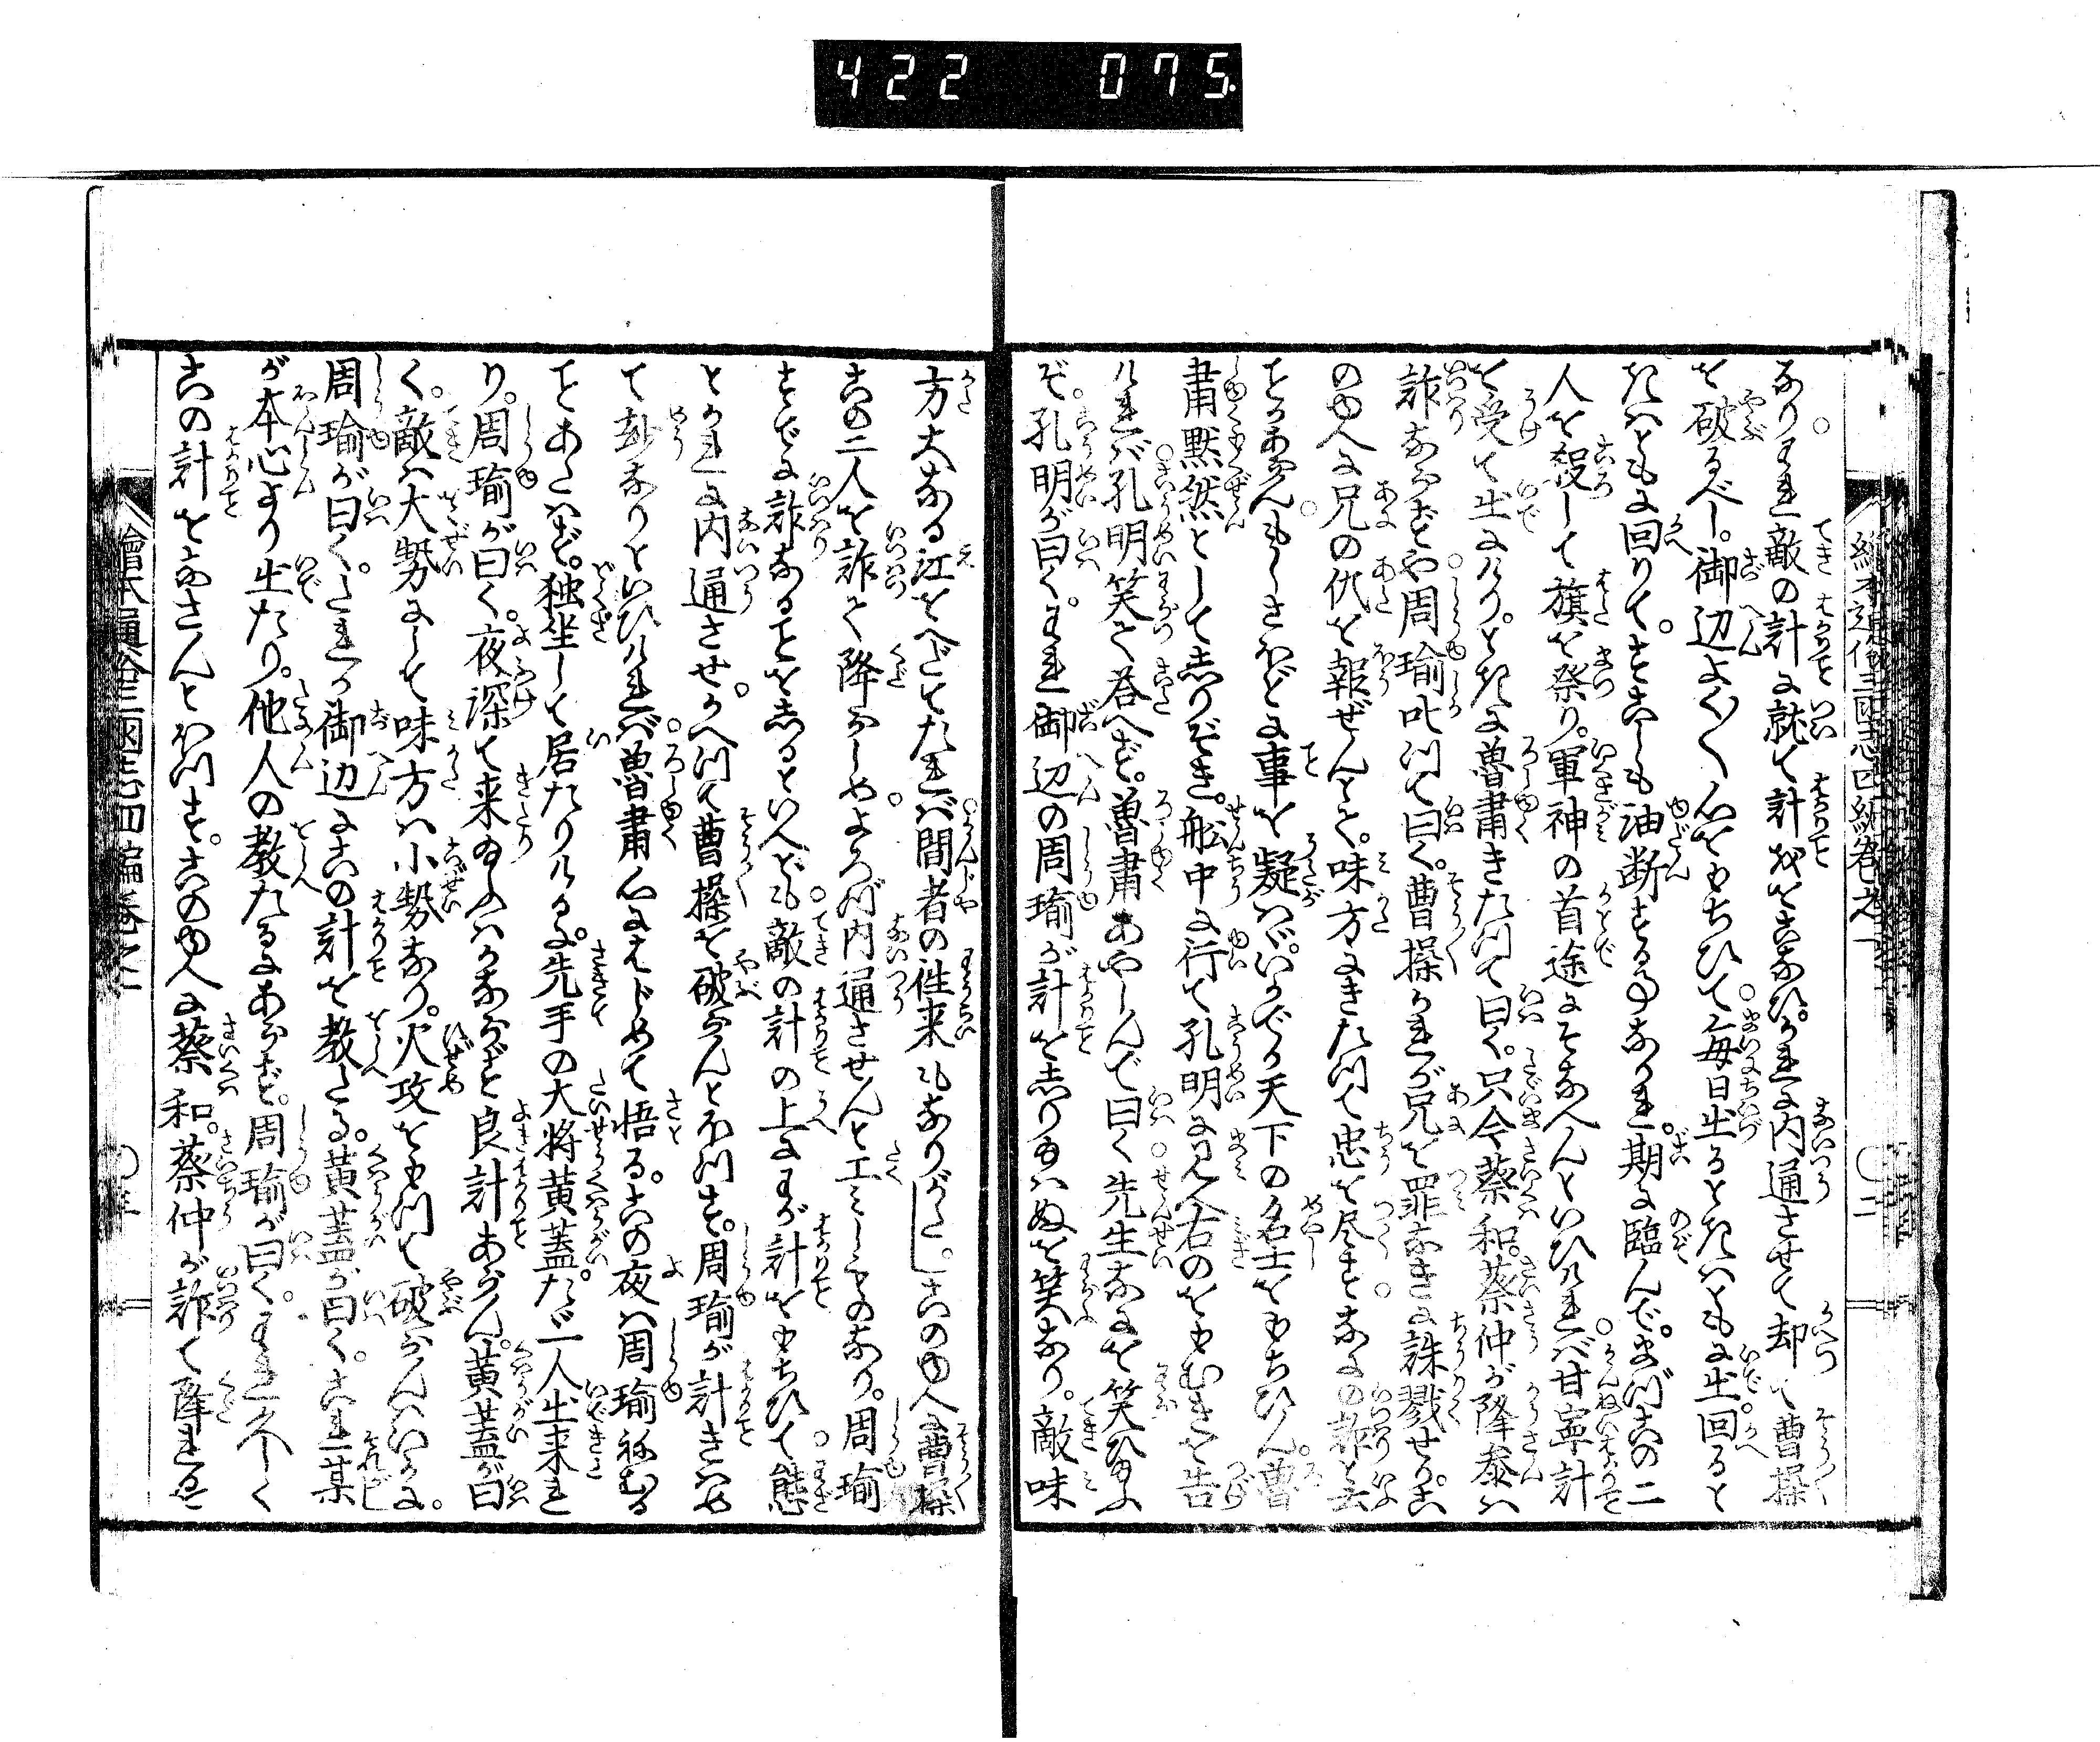 422 075
なり。われ敵の計に就て計をおこなひ。かれに内通させて却て曹操
を破るべし。御辺よく〱心をもちひて。毎日出るときハともに出。回ると
きハともに回りて。すこしも油断する事なかれ。期に臨んで。まづこの二
人を殺して旗を祭り。軍神の首途にそなへんといひけれバ。甘寧計
を受て出にけり。ときに魯粛きたつて曰く。只今蔡和。蔡仲が降参ハ
詐ならずや。周瑜叱つて曰く。曹操かれが兄を罪なきに誅戮せり。こ
のゆへに兄の仇を報ぜんとて。味方にきたつて忠を尽す。なにの詐と云
ことかあらん。もしさほどに事を疑ハゞ。いかでか天下の名士をもちひん。魯
粛黙然としてしりぞき。舩中に行て孔明に見へ。右のおもむきを告
けれバ。孔明笑て答へず。魯粛あやしんで曰く。先生なにを笑ひ玉ふ
ぞ。孔明が曰く。われ御辺の周瑜が計をしり玉ハぬを笑なり。敵味
繪本通俗三國志四編巻之一 〇二
方大なる江をへだてたれバ。間者の徃来もなりがたし。このゆへに曹操
この二人を詐て降らしめ。よろづ内通させんと工ミしものなり。周瑜
すでに詐なることをしるといへども。敵の計の上にわが計をもちひて。態
とかれに内通させ。かへつて曹操を破らんとほつす。周瑜が計きハめ
て妙なりといひけれバ。魯粛心にはじめて悟る。この夜ハ周瑜ねむる
ことあたハず。独坐して居たりける
に。先手の大将黄蓋。たゞ一人出来れ
り。周瑜が曰く。夜深て来り玉ふハかならず良計あらん。黄蓋が曰
く。敵ハ大勢にして味方ハ小勢なり。火攻をもつて破らんハいかに。
周瑜が曰く。たれか御辺にこの計を教たる。黄蓋が曰く。これ某
が本心より出たり。他人の教たるにあらず。周瑜が曰く。われ久しく
この計をなさんとほつす。このゆへに蔡和。蔡仲が詐て降れるを
繪本通俗三國志四編巻之一